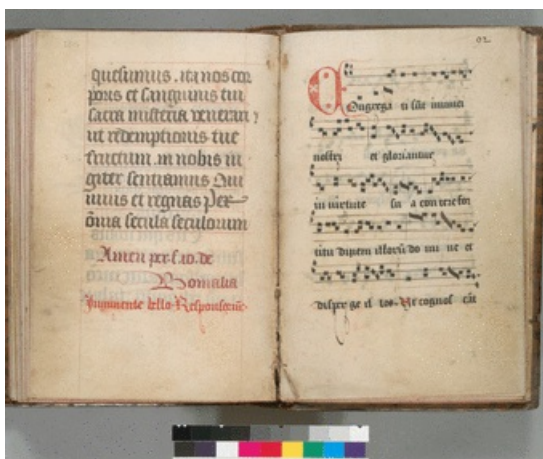 quesumus . ita nos cor
poris et sanguinis tui
sacra misteria venerari
ut redemptionis tue
fructum in nobis iu
giter sentiamus Qui
uiuis et regnas Per
oĩa secula seculorum
Amen per f. io. de
Bomalia
Imminente bello Responsoriũ
92
Congregati sũt inimici
nostri et gloriantur
in uirtute sua contere for
titu dinem illorũ do mi ne et
disper ge il los Ut cognos cãt